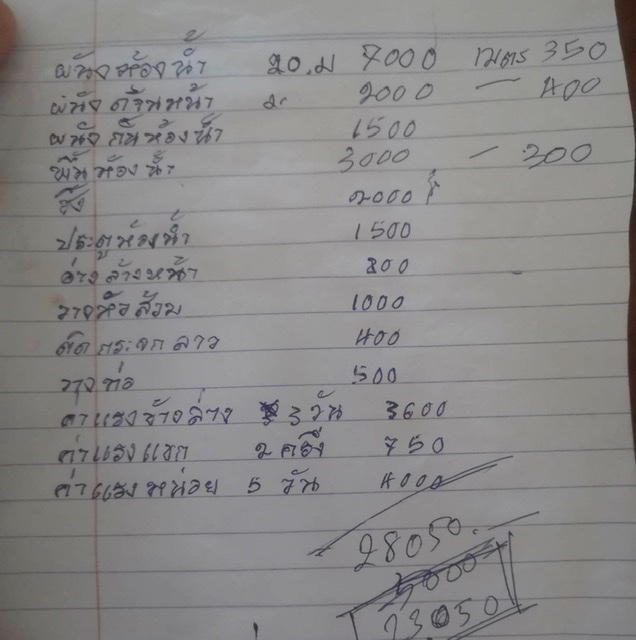 ผนังห้องน้ำ 20.ม 7000 เมตร 350
ผนัง หน้า 2000 — 400
ผนัง กั้นห้องน้ำ 1500
พื้นห้องน้ำ 3000 — 300
2000
ประตูห้องน้ำ 1500
อ่างล้างหน้า 800
วางหัวส้วม 1000
ติดกระจก ลาว 400
วางท่อ 500
ค่าแรงช้างล่าง 3 วัน 3600
ค่าแรงแขก 2 ครึ่ง 750
ค่าแรงหน่อย 5 วัน 4000
28050.
5000
23050